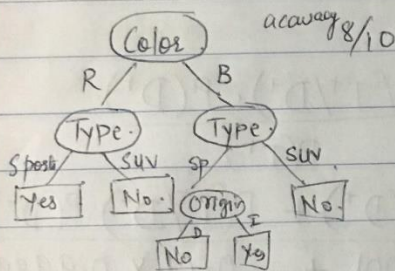 acauacy 8/10
Color
R B
Type. Type.
Sports SUV SP SUV.
Yes No. Origin No.
D I
No Yes